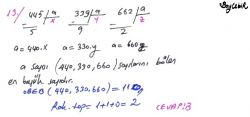 13/ 445 | a 339 | a 662 | a
x y z
5 9 2
a=440.x a=330.y a=660.z
a sayısı (440,330,660) sayılarını bölen
en büyük sayıdır.
OBEB(440,330,660)=110
Rak. top=1+1+0=2
CEVAP:B